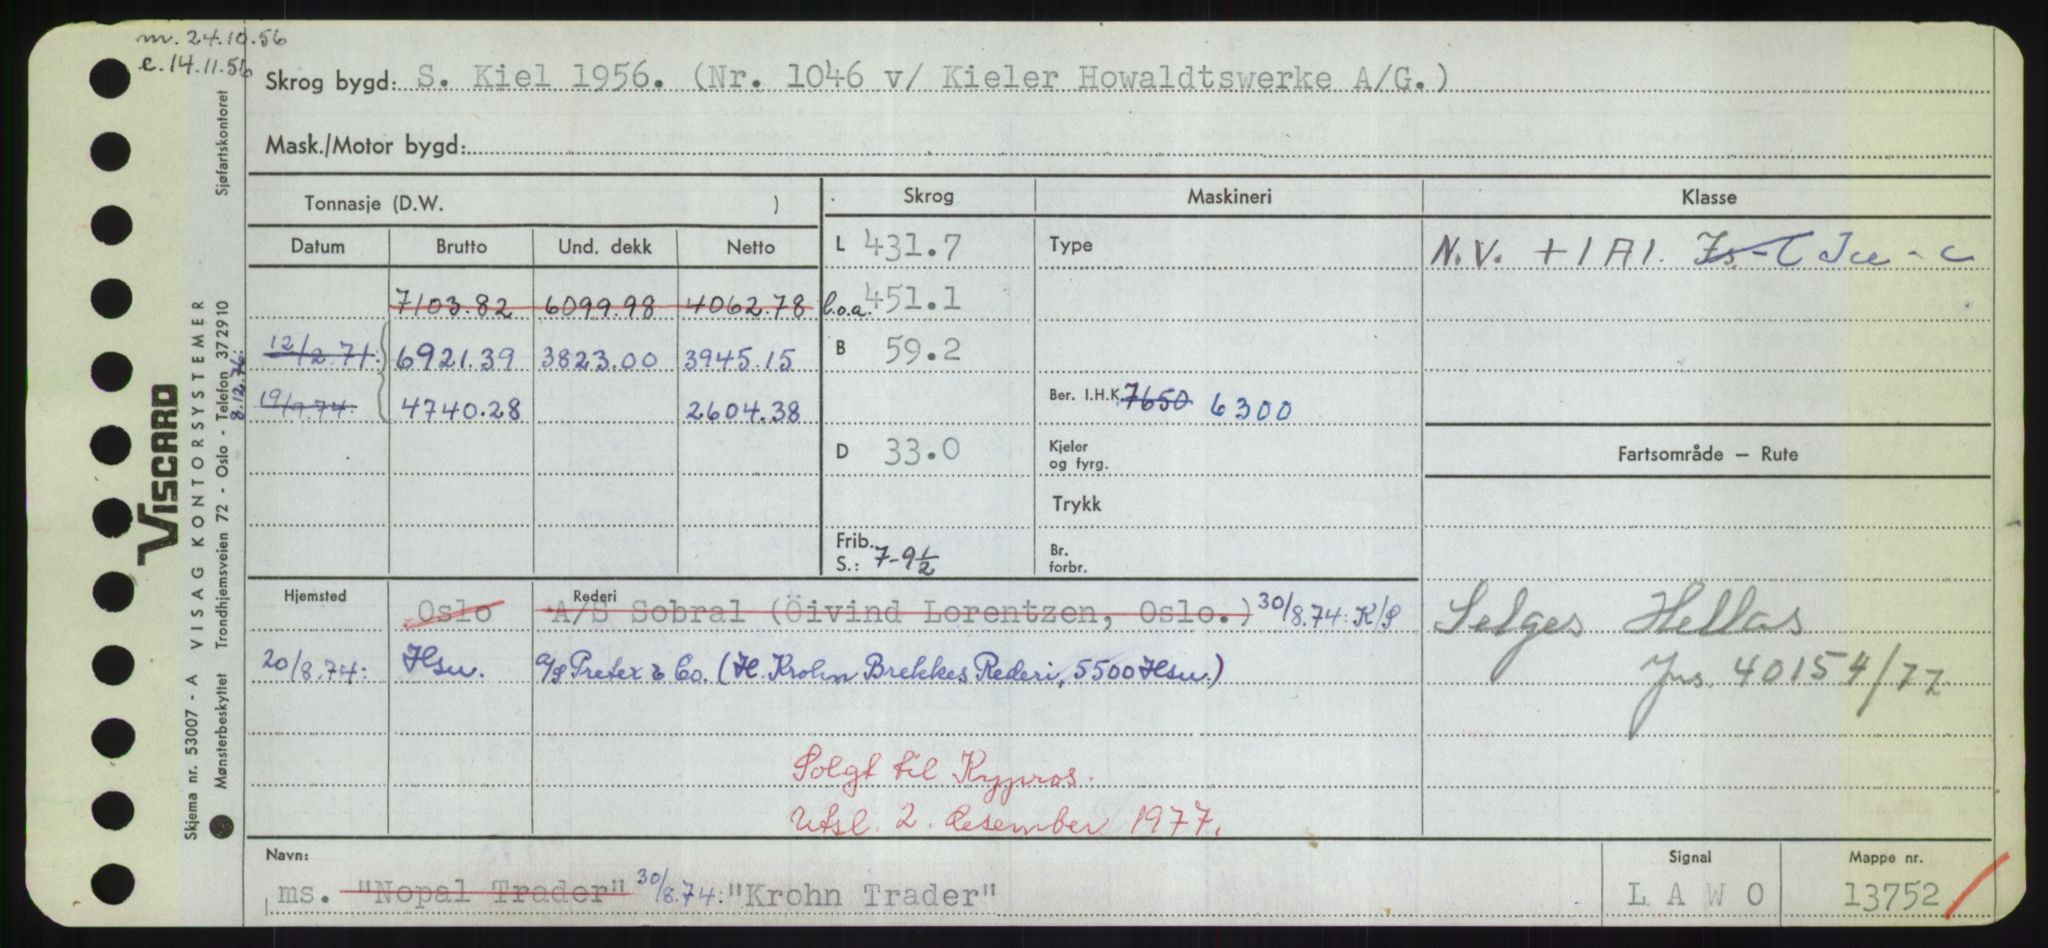 m. 24.10.56
c. 14.11.56
Skrog bygd: S. Kiel 1956. (Nr. 1046 v/ Kieler Howaldtswerke A/G.)
Mask./Motor bygd:
Tonnasje (D.W. )
Skrog
Maskineri
Klasse
Datum Brutto Und. dekk Netto
L 431.7
Type
N.V. +1A1. Is-C Ice-C
7103.82 6099.98 4062.78
l.o.a. 451.1
12/2.71. 6921.39 3823.00 3945.15
B 59.2
19/9.74. 4740.28 2604.38
Ber. I.H.K. 7650 6300
D 33.0
Kjeler
og fyrg.
Fartsområde – Rute
Trykk
Frib.
S.: 7-9½
Br.
forbr.
Hjemsted
Rederi
Oslo A/S Sobral (Öivind Lorentzen, Oslo.) 30/8.74: K/S
20/8.74: Hsu. A/S Preter & Co. (H. Krohn Brekkes Rederi, 5500 Hsu.)
Selges Hellas
Jns. 40154/77
Solgt til Kypros.
Utsl. 2. desember 1977.
Navn:
ms. "Nopal Trader" 30/8.74: "Krohn Trader"
Signal
L A W O
Mappe nr.
13752
VISCARD
Skjema nr. 53007 - A VISAG KONTORSYSTEMER
8.12.76:
Mønsterbeskyttet Trondhjemsveien 72 - Oslo - Telefon 372910
Sjøfartskontoret